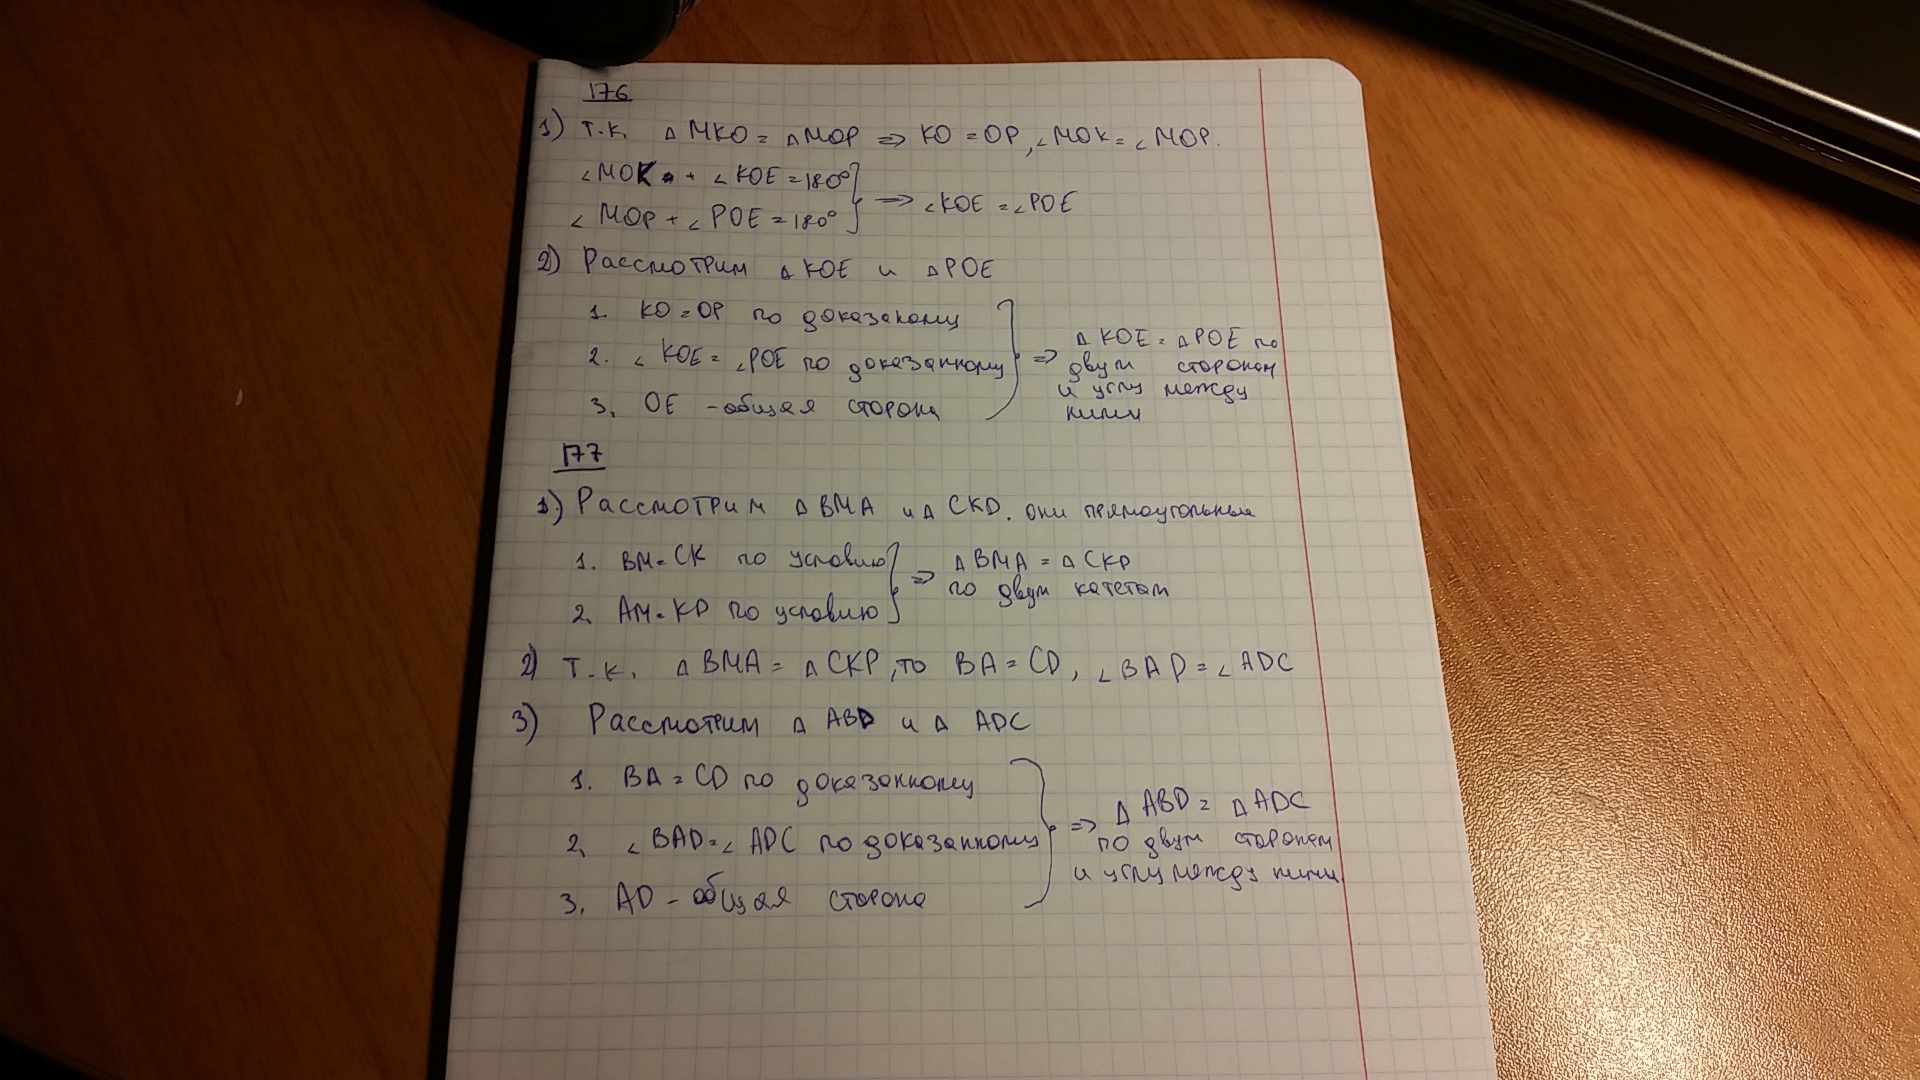 176
1) т.к. △MKO = △MOP ⇒ KO = OP, ∠MOK = ∠MOP.
∠MOK + ∠KOE = 180°
∠MOP + ∠POE = 180° ⇒ ∠KOE = ∠POE
2) Рассмотрим △KOE и △POE
1. KO = OP по доказаному
2. ∠KOE = ∠POE по доказанному
3. OE - общая сторона
⇒ △KOE = △POE по
двум сторонам
и углу между
ними
177
1) Рассмотрим △BMA и △CKD. они прямоугольные
1. BM = CK по условию
2. AM = KP по условию
⇒ △BMA = △CKP
по двум катетам
2) т.к. △BMA = △CKP, то BA = CD, ∠BAD = ∠ADC
3) Рассмотрим △ABD и △ADC
1. BA = CD по доказанному
2. ∠BAD = ∠ADC по доказанному
3. AD - общая сторона
⇒ △ABD = △ADC
по двум сторонам
и углу между ними